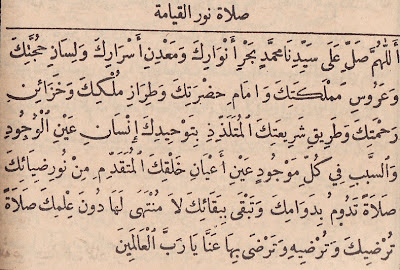 صلاة نور القيامة
أَللّٰهُمَّ صَلِّ عَلَى سَيِّدِنَا مُحَمَّدٍ بَحْرِ أَنْوَارِكَ وَمَعْدِنِ أَسْرَارِكَ وَلِسَانِ حُجَّتِكَ
وَعَرُوسِ مَمْلَكَتِكَ وَإِمَامِ حَضْرَتِكَ وَطِرَازِ مُلْكِكَ وَخَزَائِنِ
رَحْمَتِكَ وَطَرِيقِ شَرِيعَتِكَ الْمُتَلَذِّذِ بِتَوْحِيدِكَ إِنْسَانِ عَيْنِ الْوُجُودِ
وَالسَّبَبِ فِي كُلِّ مَوْجُودٍ عَيْنِ أَعْيَانِ خَلْقِكَ الْمُتَقَدِّمِ مِنْ نُورِ ضِيَائِكَ
صَلَاةً تَدُومُ بِدَوَامِكَ وَتَبْقَى بِبَقَائِكَ لَا مُنْتَهَى لَهَا دُونَ عِلْمِكَ صَلَاةً
تُرْضِيكَ وَتُرْضِيهِ وَتَرْضَى بِهَا عَنَّا يَا رَبَّ الْعَالَمِينَ